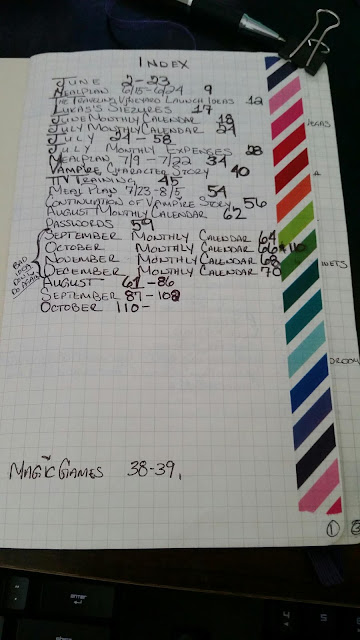 INDEX
JUNE 2-23
MEALPLAN 6/15-6/24 9
THE TRAVELING VINEYARD LAUNCH IDEAS 12
LUKAS'S SIEZURES 17
JUNE MONTHLY CALENDAR 18
JULY MONTHLY CALENDAR 24
JULY 24-58
JULY MONTHLY EXPENSES 28
MEALPLAN 7/9-7/22 34
VAMPIRE CHARACTER STORY 40
TV TRAINING 45
MEAL PLAN 7/23-8/5 54
CONTINUATION OF VAMPIRE STORY 56
AUGUST MONTHLY CALENDAR 62
PASSWORDS 59
SEPTEMBER MONTHLY CALENDAR 64
OCTOBER MONTHLY CALENDAR 66 & 110
NOVEMBER MONTHLY CALENDAR 68
DECEMBER MONTHLY CALENDAR 70
BAD
IDEA
DON'T
DO AGAIN
AUGUST 61-86
SEPTEMBER 87-108
OCTOBER 110-
MAGIC GAMES 38-39.
VEGAS
1
enter